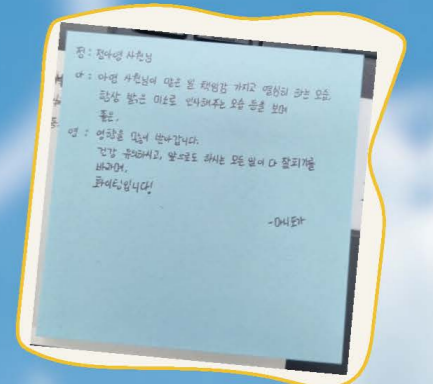 정 : 정다연 사원님
다 : 다연 사원님이 맡은 일 책임감 가지고 열심히 하는 모습.
항상 밝은 미소로 인사해주는 모습 등을 보며
좋은.
연 : 영향을 많이 받아갑니다.
건강 유의하시고, 앞으로도 하시는 모든 일이 다 잘되기를
바라며.
화이팅입니다!